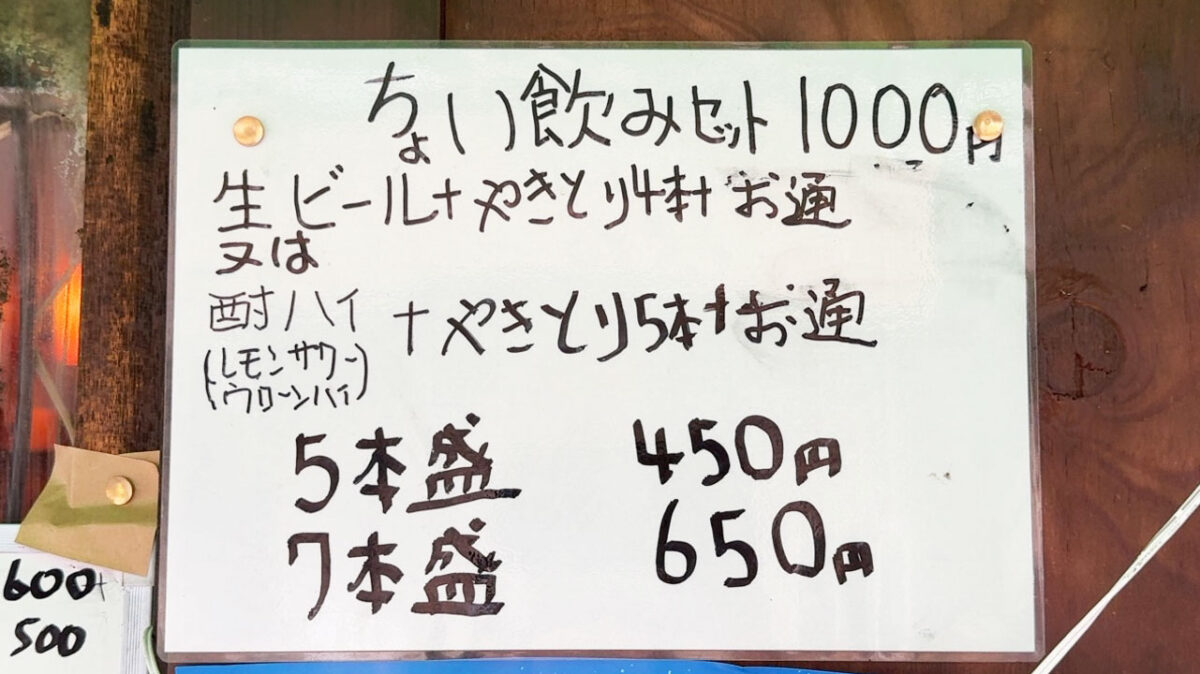 ちょい飲みセット1000円
生ビール+やきとり4本+お通
又は
酎ハイ+やきとり5本+お通
(レモンサワー
ウローンハイ)
5本盛 450円
7本盛 650円
600
500